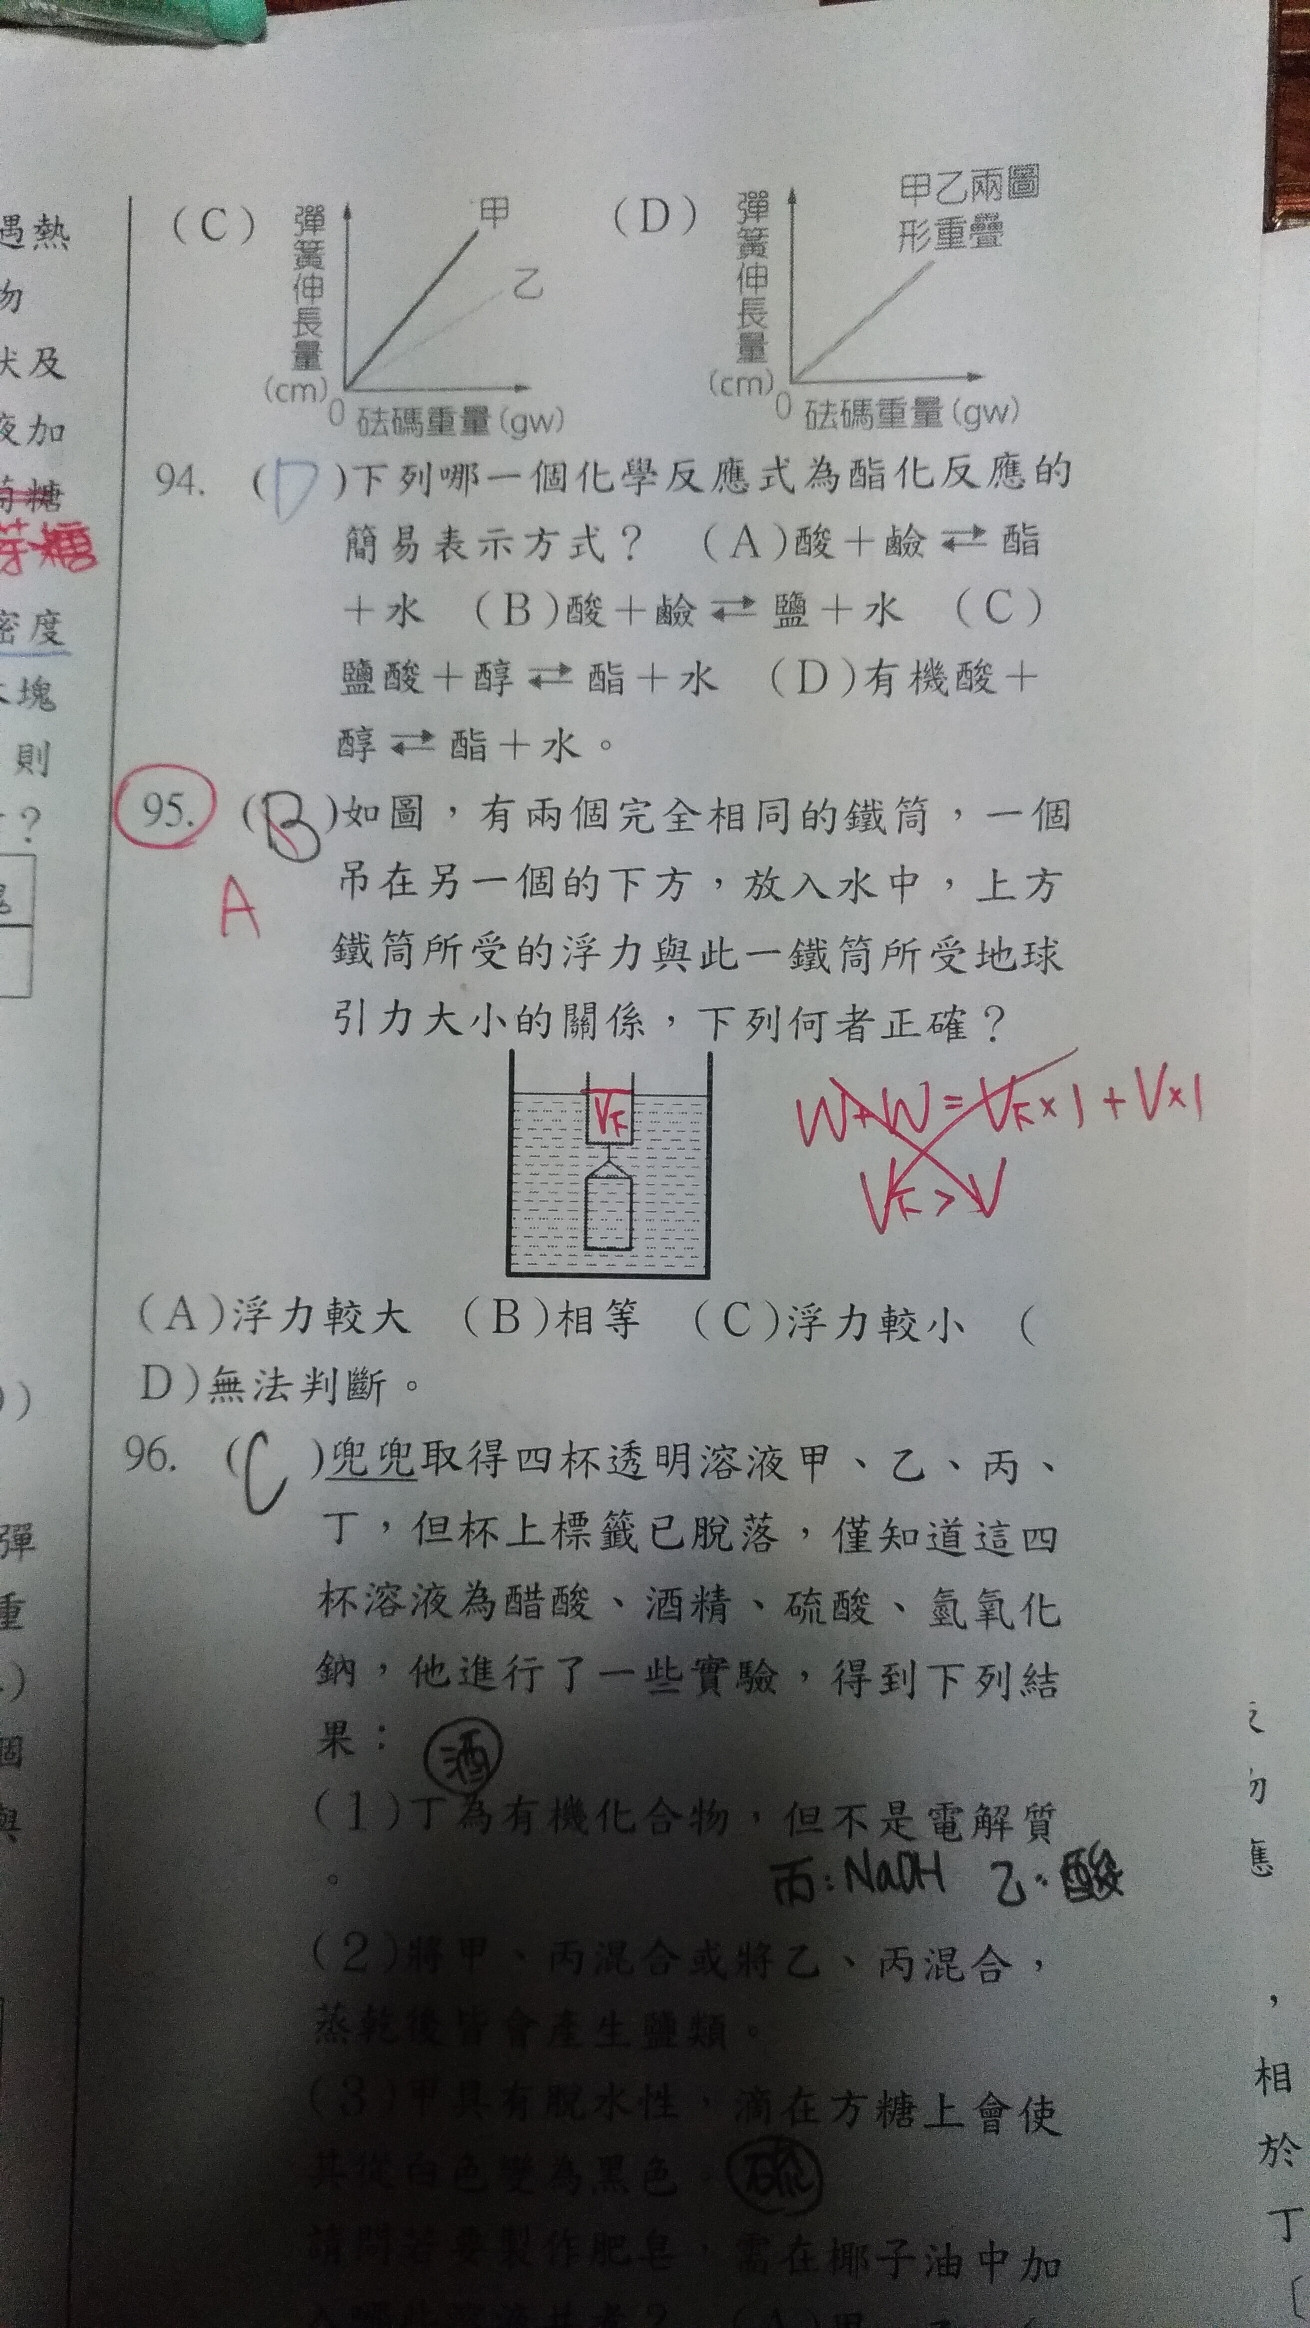 遇熱
物
狀及
液加
萄糖
芽糖
密度
木塊
則
?
(C)
彈簧伸長量
(cm)
甲
乙
0 砝碼重量(gw)
(D)
彈簧伸長量
(cm)
甲乙兩圖
形重疊
0 砝碼重量(gw)
94. (D)下列哪一個化學反應式為酯化反應的
簡易表示方式? (A)酸+鹼⇄酯
+水 (B)酸+鹼⇄鹽+水 (C)
鹽酸+醇⇄酯+水 (D)有機酸+
醇⇄酯+水。
95. (B)如圖,有兩個完全相同的鐵筒,一個
A
吊在另一個的下方,放入水中,上方
鐵筒所受的浮力與此一鐵筒所受地球
引力大小的關係,下列何者正確?
V下
W+W=V下×1+V×1
V下>V
(A)浮力較大 (B)相等 (C)浮力較小 (
D)無法判斷。
96. (C)兜兜取得四杯透明溶液甲、乙、丙、
丁,但杯上標籤已脫落,僅知道這四
杯溶液為醋酸、酒精、硫酸、氫氧化
鈉,他進行了一些實驗,得到下列結
果:
酒
(1)丁為有機化合物,但不是電解質
。
丙:NaOH 乙:酸
(2)將甲、丙混合或將乙、丙混合,
蒸乾後皆會產生鹽類。
(3)甲具有脫水性,滴在方糖上會使
其從白色變為黑色。
硫
請問若要製作肥皂,需在椰子油中加
彈
重
個
與
應
,
相
於
丁